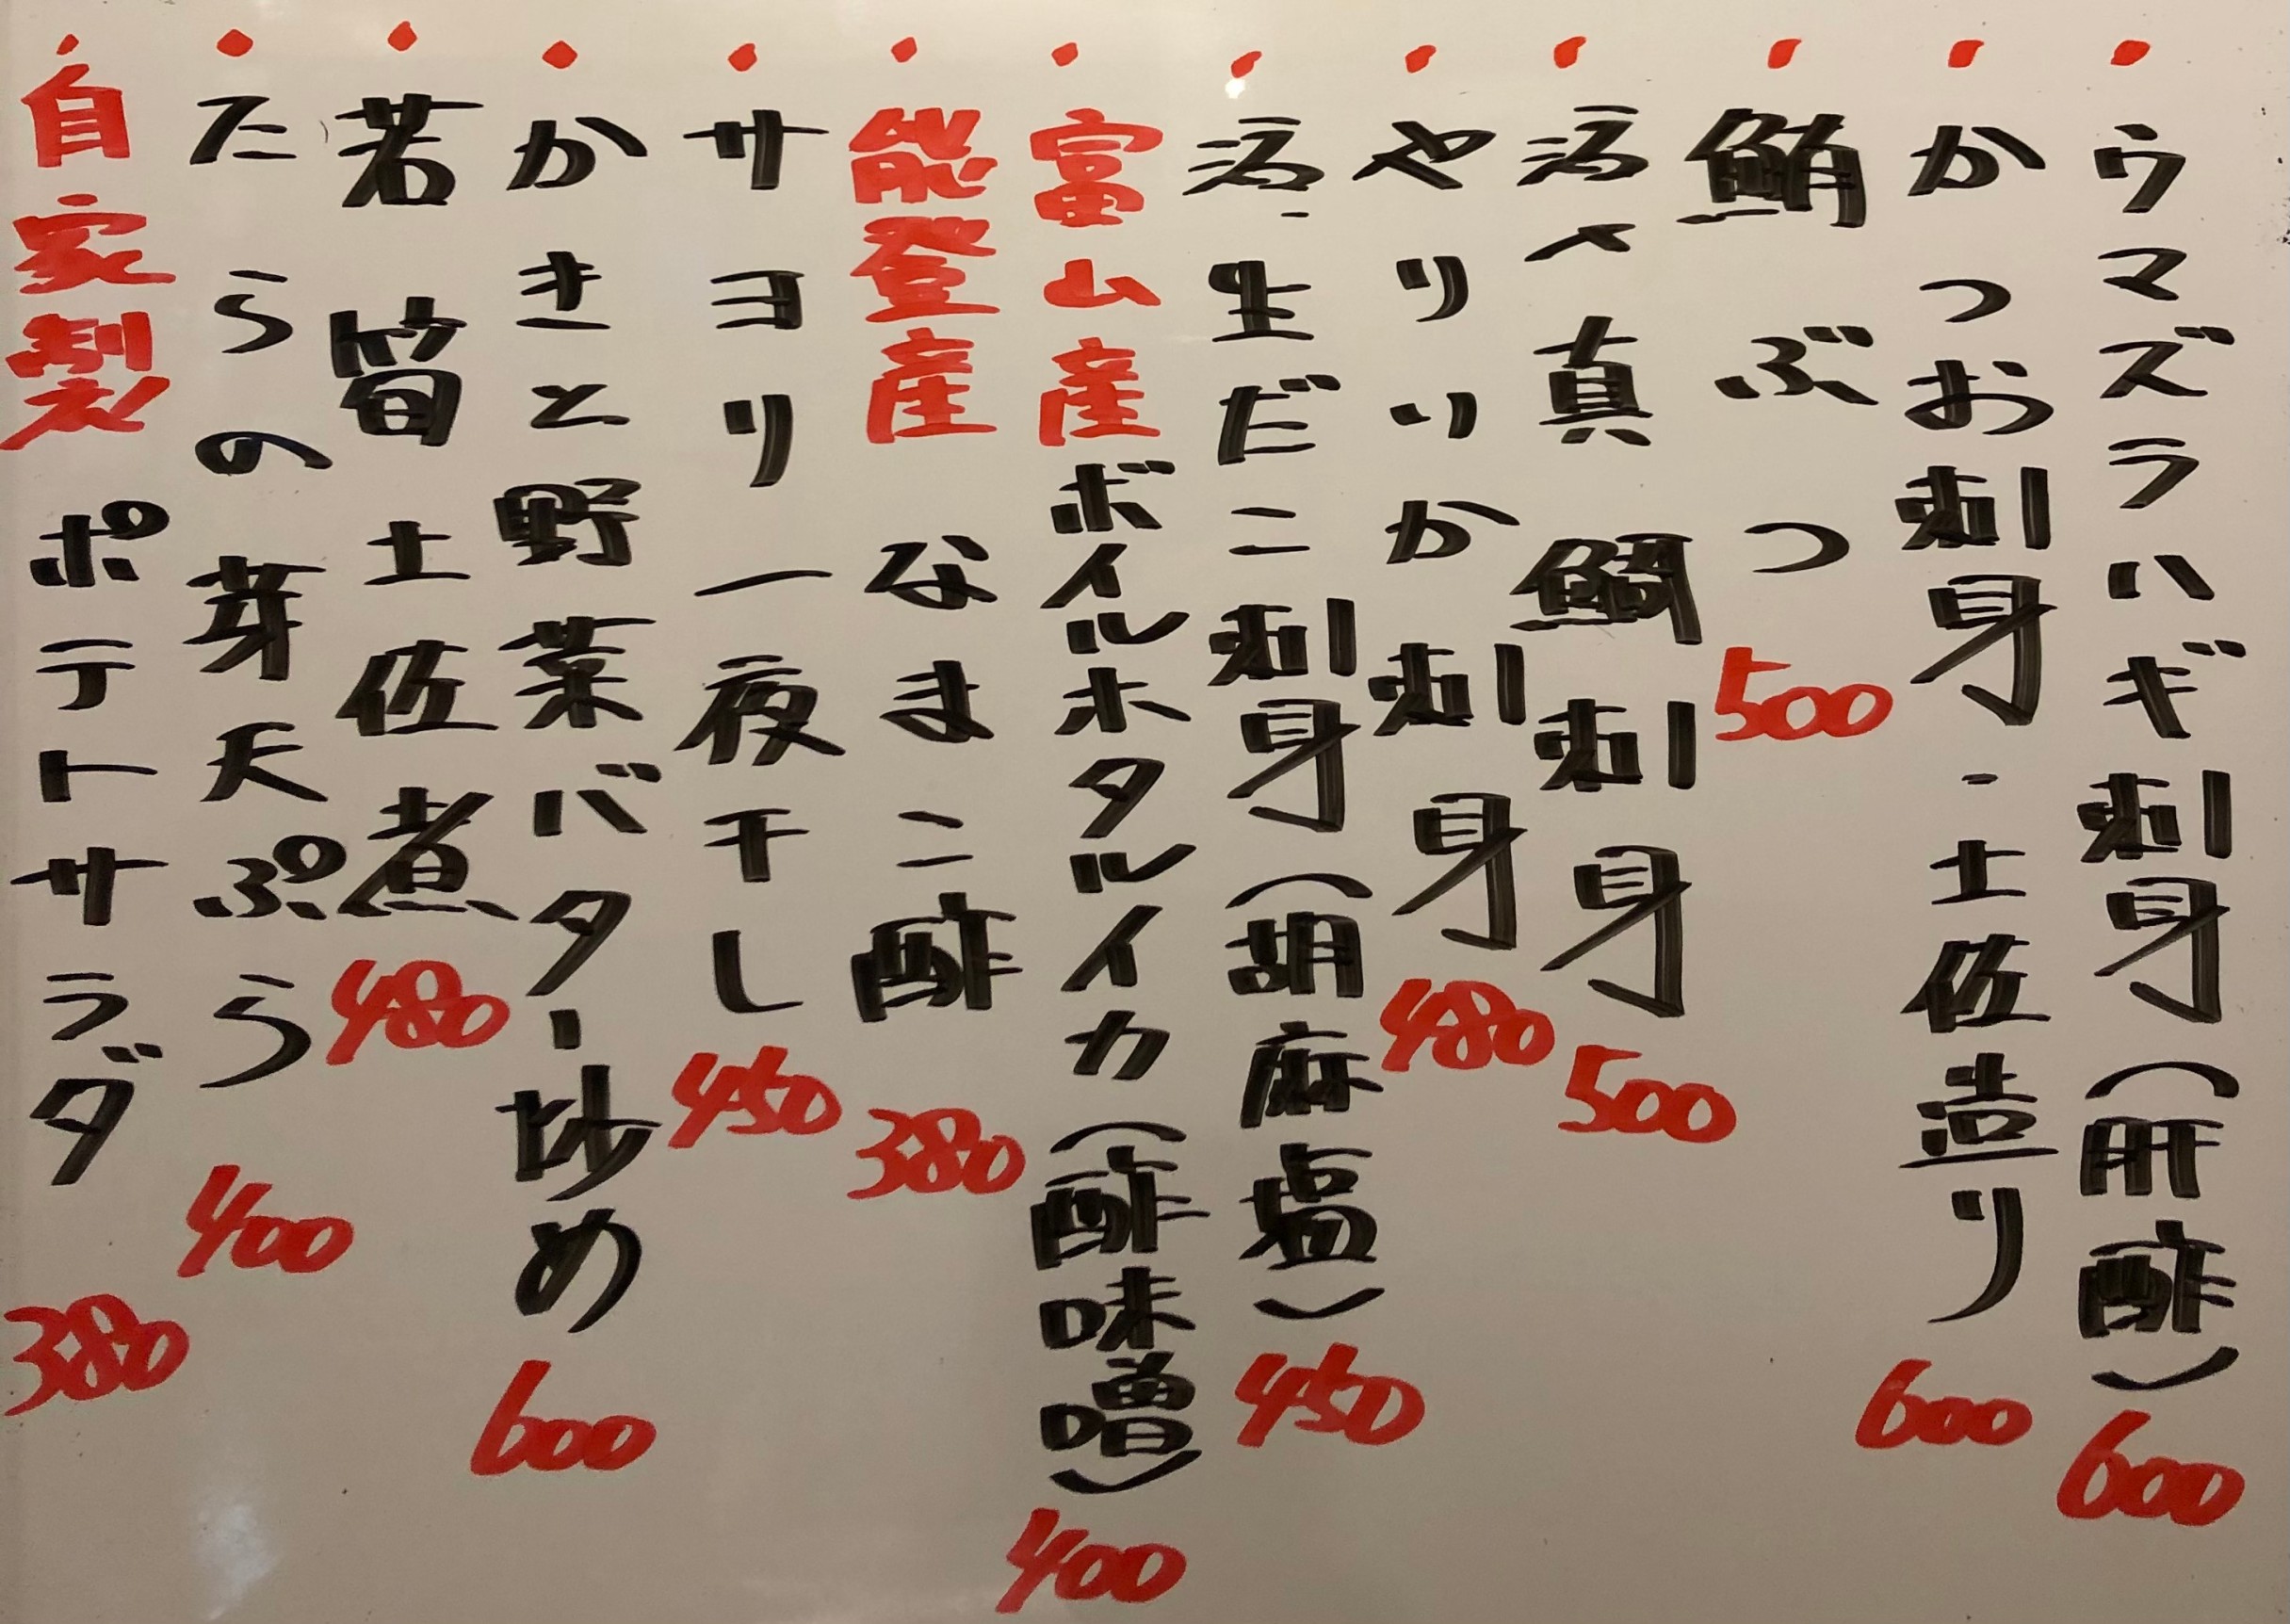 ・ウマズラハギ刺身(肝酢)600
・かつお刺身・土佐造り600
・鮪ぶつ500
・活〆真鯛刺身500
・やりいか刺身480
・活・生だこ刺身(胡麻塩)450
・富山産ボイルホタルイカ(酢味噌)400
・能登産なまこ酢380
・サヨリ一夜干し450
・かきと野菜バター炒め600
・若筍土佐煮480
・たらの芽天ぷら400
・自家製ポテトサラダ380